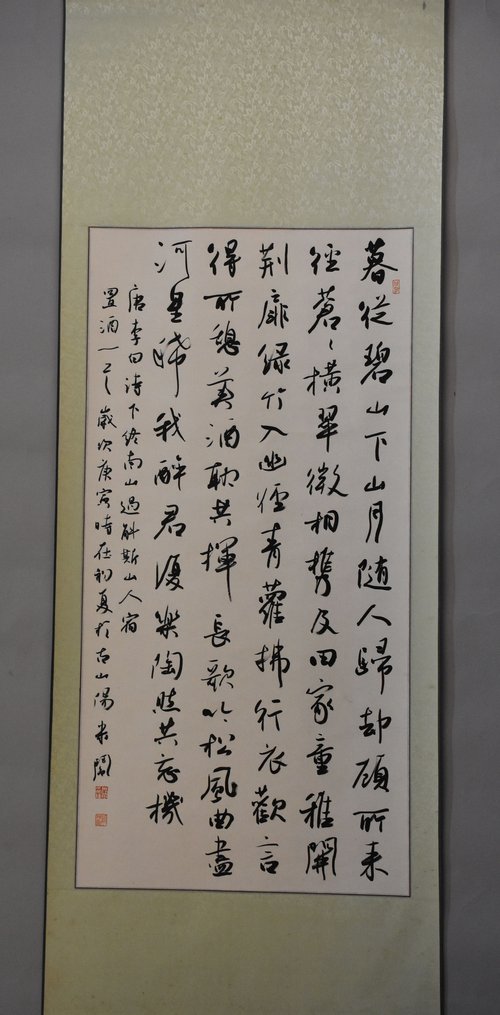 暮從碧山下山月随人歸却顧所来
徑蒼々橫翠微相攜及田家童稚開
荆扉绿竹入幽徑青蘿拂行衣歡言
得所憩美酒聊共揮長歌吟松風曲盡
河星稀我醉君復樂陶然共忘機
唐李白诗下终南山過斛斯山人宿
置酒一 歲次庚寅時在初夏於古山陽